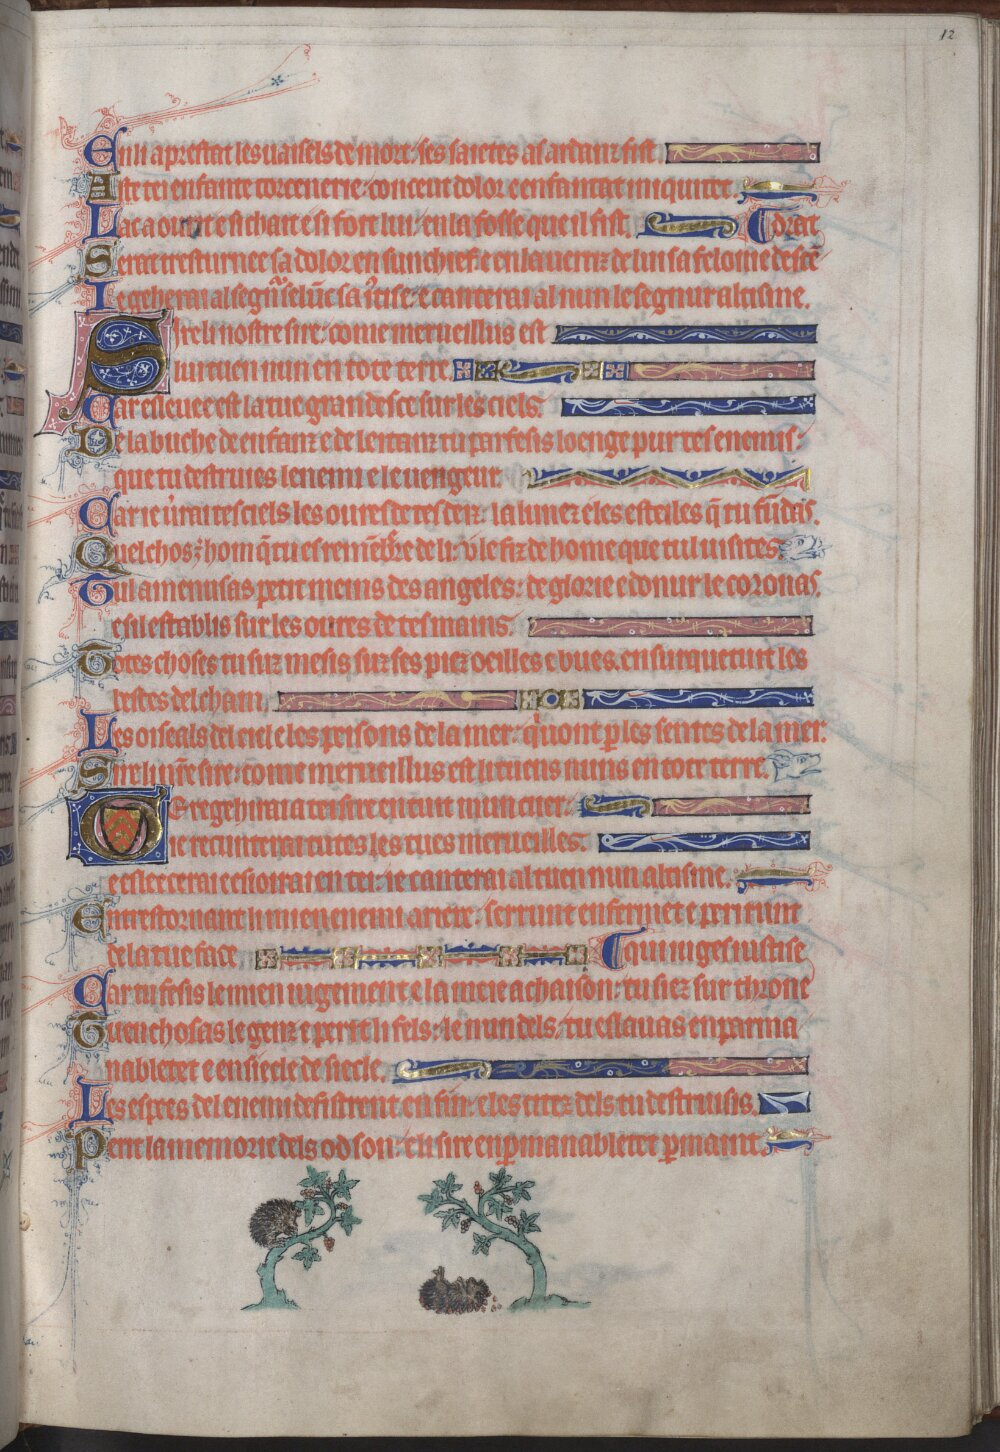 12
E en li aprestat les vaisels de mort: ses saietes as ardanz fist
Aste tei enfante torcenerie: conceut dolor e enfantat iniquitet.
Lac aourit e si chait e si foret lui: en la fosse que il fist
Serat tresturnee sa dolor en sun chief: e en la
Ie geherai al segnur e canterai al nun le segnur altisme.
Sire li nostre sire: come merueillus est
li tuen nun en tote terre
Car esleuee est la tue grandesce sur les ciels.
De la buche de enfanz e de letanz tu parfesis loenge pur tes enemis:
que tu destruies lenemi e le uengeur.
Car ie verrai tes ciels les oures de tes deiz: la lune e les esteilles que tu fundas.
Quel chose est hom que tu es remembere de li: v le fiz de home que tu luisites
Tu lamenusas petit meins des angeles: de glorie e donur le coronas.
e sil establis sur les oures de tes mains.
Totes choses tu suz mesis suz ses piez oeilles e bues. en surquetut les
bestes del cham
Les oiseals del ciel e les peisons de la mer: qui uont par les sentes de la mer.
Sire li nostre sire: come merueillus est li tuens nuns en tote terre.
E regehirai a tei sire en tut mun cuer:
ie recunterai tutes les tues merueilles.
e esleecerai e esioirai en tei: ie canterai al tuen nun altisme.
En trestornant li mien enemi ariere: serrunt enfermet e perirunt
de la tue face qui iuges iustise
Car tu fesis le mien iugement e la meie achaison: tu siez sur throne
Tu en chosas le genz e perist li fels: le nun dels tu eslauas en parma
nabletet e en siecle de siecle.
Les espees del enemi defistrent en fin: e les citez dels tu destruisis.
Perit la memorie dels od son: e li sire en permanabletet permaint.